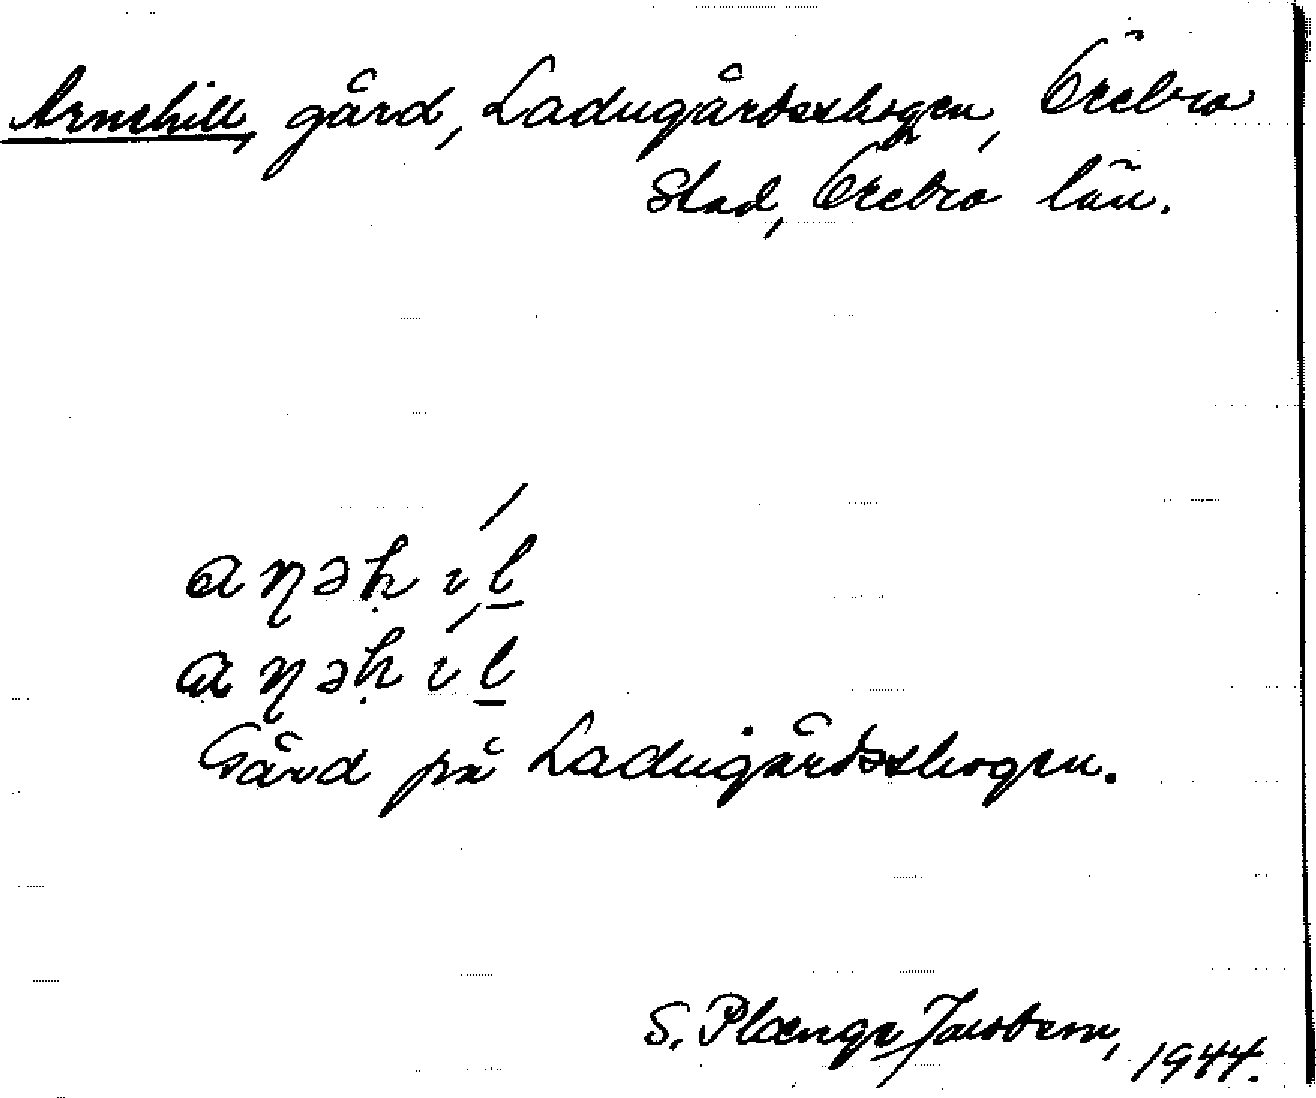 Arnehill, gård, Ladugårdsskogen, Örebro
Stad, Örebro län.
aɳəḥ ıl̲
aɳəḥ ıl̲
Gård på Ladugårdsskogen.
S. Plænge Jacobson, 1944.